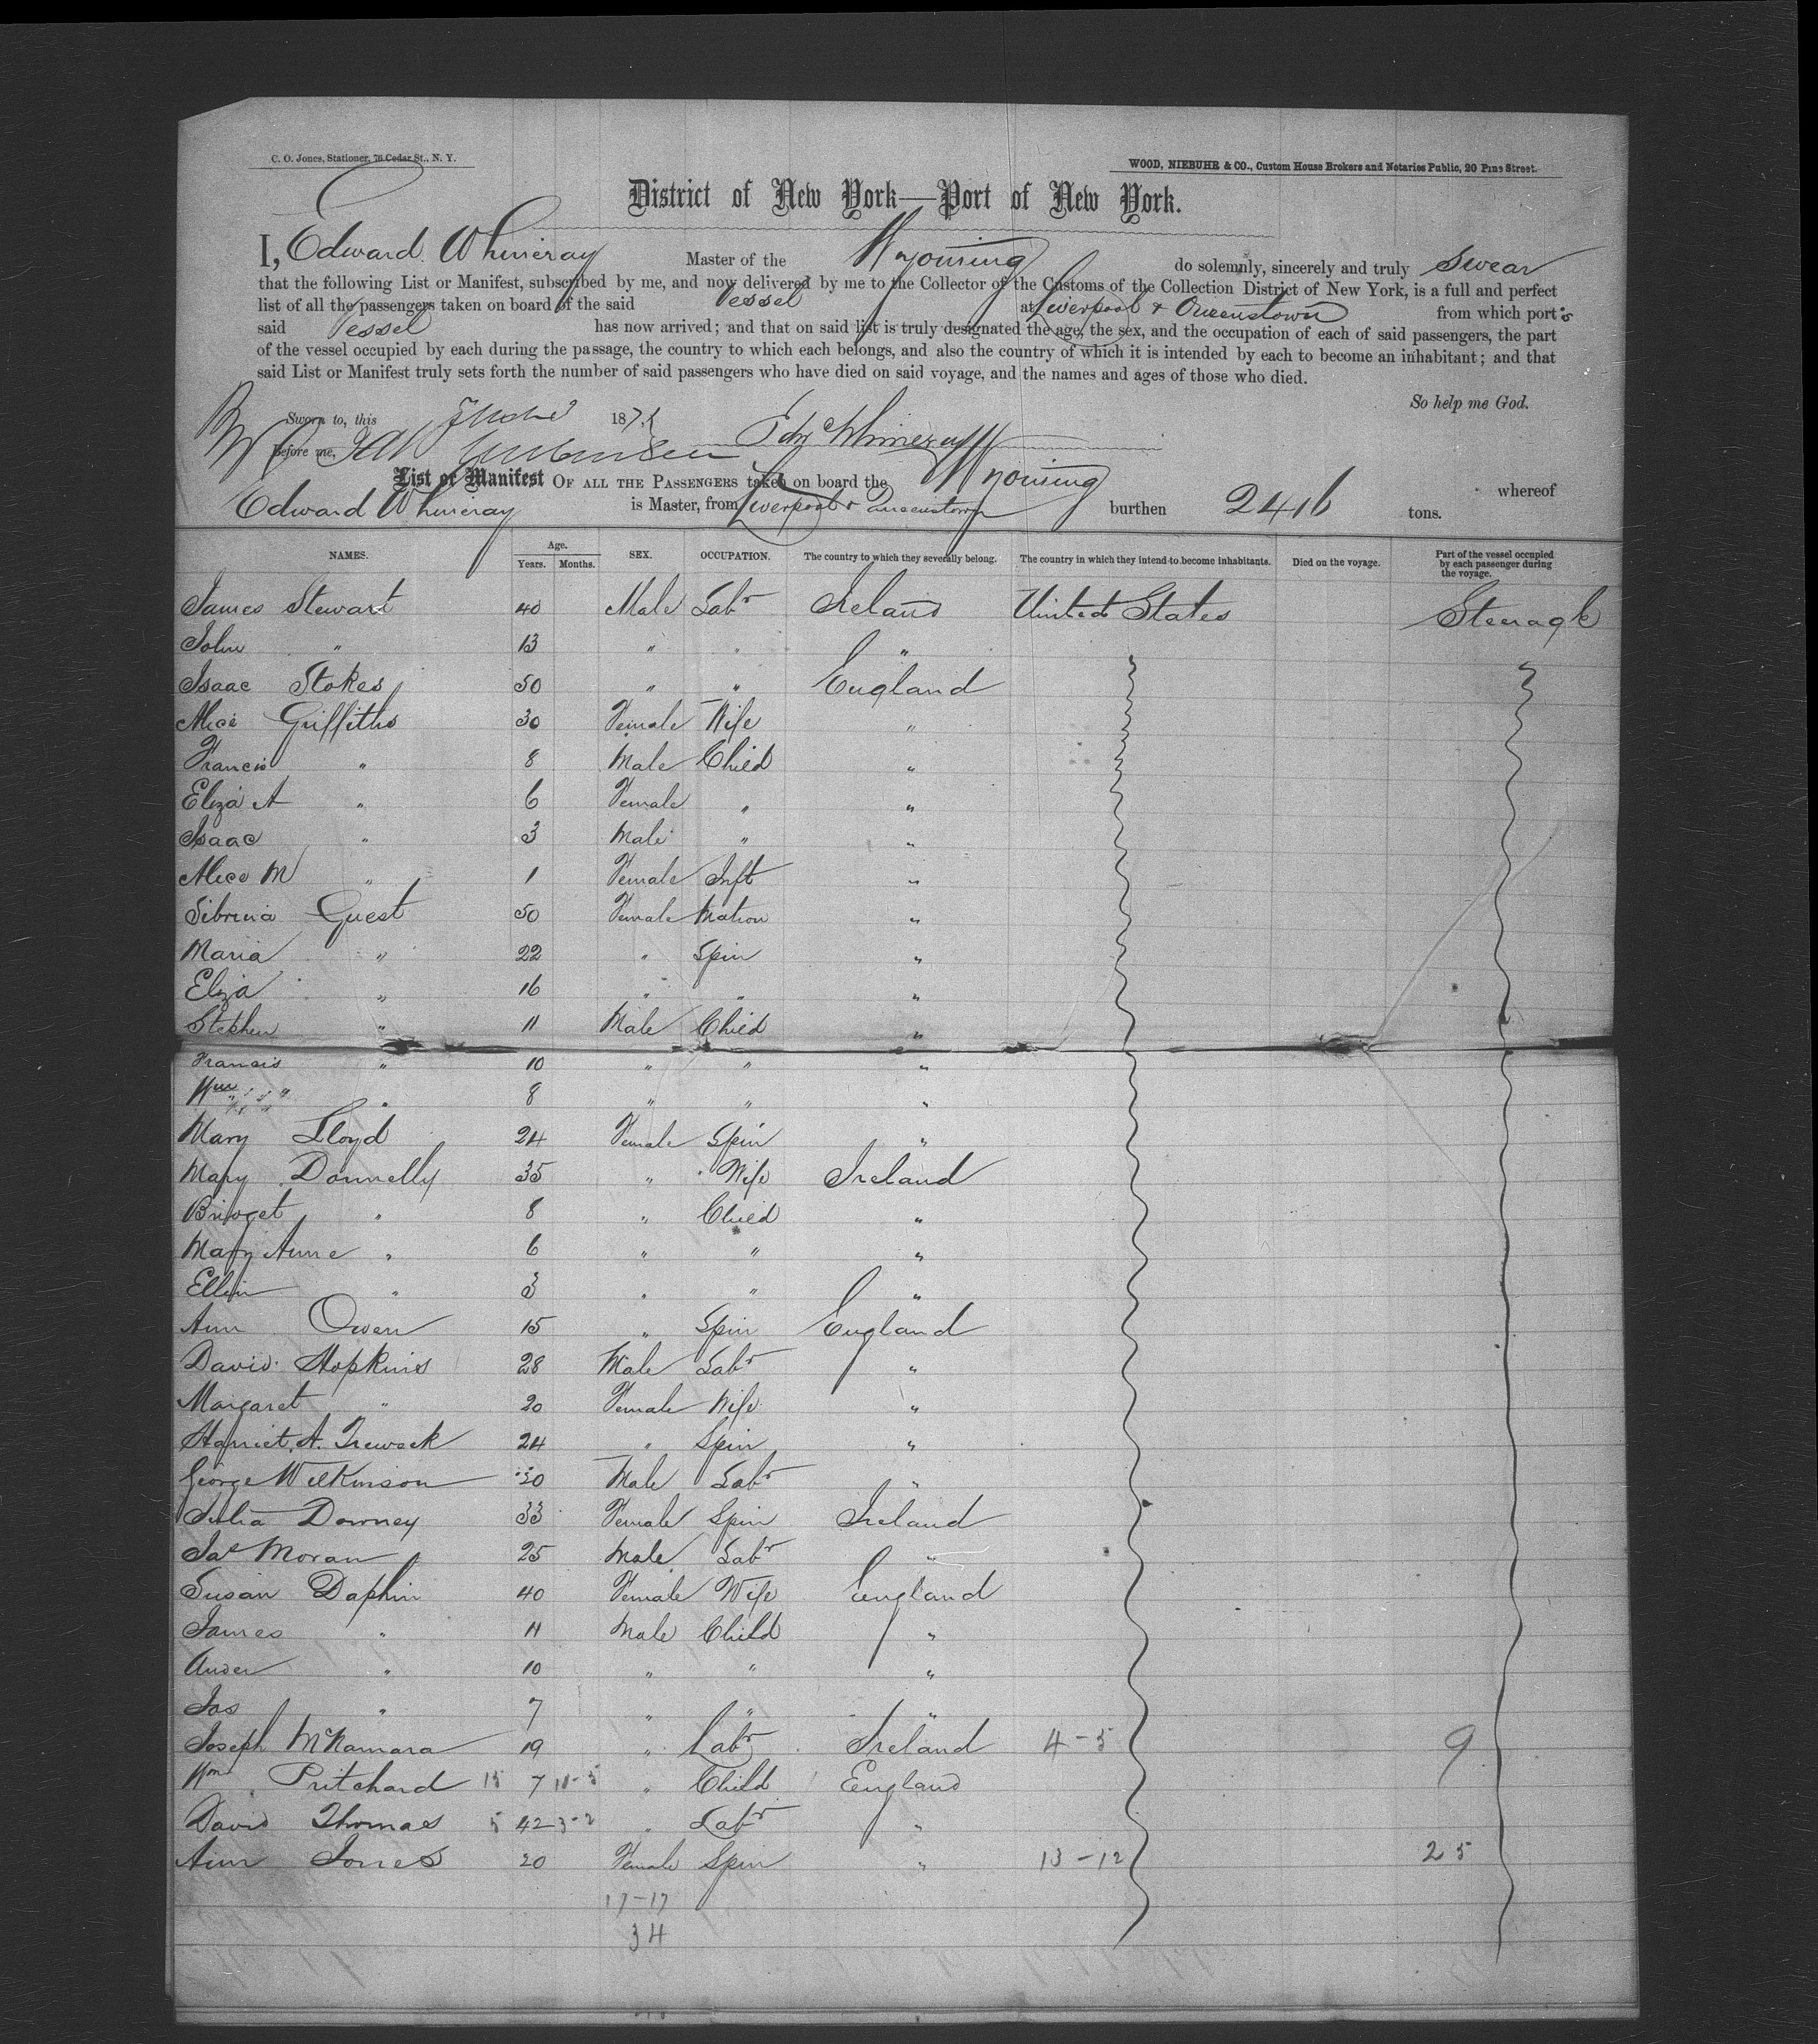 C. O. Jones, Stationer, 76 Cedar St., N. Y.
WOOD, NIEBUHR & CO., Custom House Brokers and Notaries Public, 20 Pine Street.
District of New York—Port of New York.
I, Edward Whineray Master of the Wyoming do solemnly, sincerely and truly swear
that the following List or Manifest, subscribed by me, and now delivered by me to the Collector of the Customs of the Collection District of New York, is a full and perfect
list of all the passengers taken on board of the said Vessel at Liverpool & Queenstown from which ports
said Vessel has now arrived; and that on said list is truly designated the age, the sex, and the occupation of each of said passengers, the part
of the vessel occupied by each during the passage, the country to which each belongs, and also the country of which it is intended by each to become an inhabitant; and that
said List or Manifest truly sets forth the number of said passengers who have died on said voyage, and the names and ages of those who died.
So help me God.
Sworn to, this 187
Before me, Edw Whineray
List or Manifest OF ALL THE PASSENGERS taken on board the Wyoming whereof
Edward Whineray is Master, from Liverpool & Queenstown burthen 2416 tons.
NAMES. Age. Years. Months. SEX. OCCUPATION. The country to which they severally belong. The country in which they intend to become inhabitants. Died on the voyage. Part of the vessel occupied by each passenger during the voyage.
James Stewart 40 Male Labr Ireland United States Steerage
John " 13 " " "
Isaac Stokes 50 " " England
Alice Griffiths 30 Female Wife "
Francis " 8 Male Child "
Eliza A " 6 Female " "
Isaac " 3 Male " "
Alice M " 1 Female Inft "
Sibrina Guest 50 Female Matron "
Maria " 22 " Spin "
Eliza " 16 " " "
Stephen " 11 Male Child "
Francis " 10 " " "
Wm " 8 " " "
Mary Lloyd 24 Female Spin "
Mary Donnelly 35 " Wife Ireland
Bridget " 8 " Child "
Mary Anne " 6 " " "
Ellin " 3 " " "
Ann Owen 15 " Spin England
David Hopkins 28 Male Labr "
Margaret " 20 Female Wife "
Harriet A. Treweek 24 " Spin "
George Wilkinson 30 Male Labr "
Julia Downey 33 Female Spin Ireland
Jas Moran 25 Male Labr "
Susan Daphin 40 Female Wife England
James " 11 Male Child "
" 10 " " "
Jos " 7 " " "
Joseph McNamara 19 " Labr Ireland 4-5 9
Wm Pritchard 13 7 11-5 " Child England
David Thomas 5 42 3-2 " Labr "
Ann Jones 20 Female Spin " 13-12 25
17-17
34